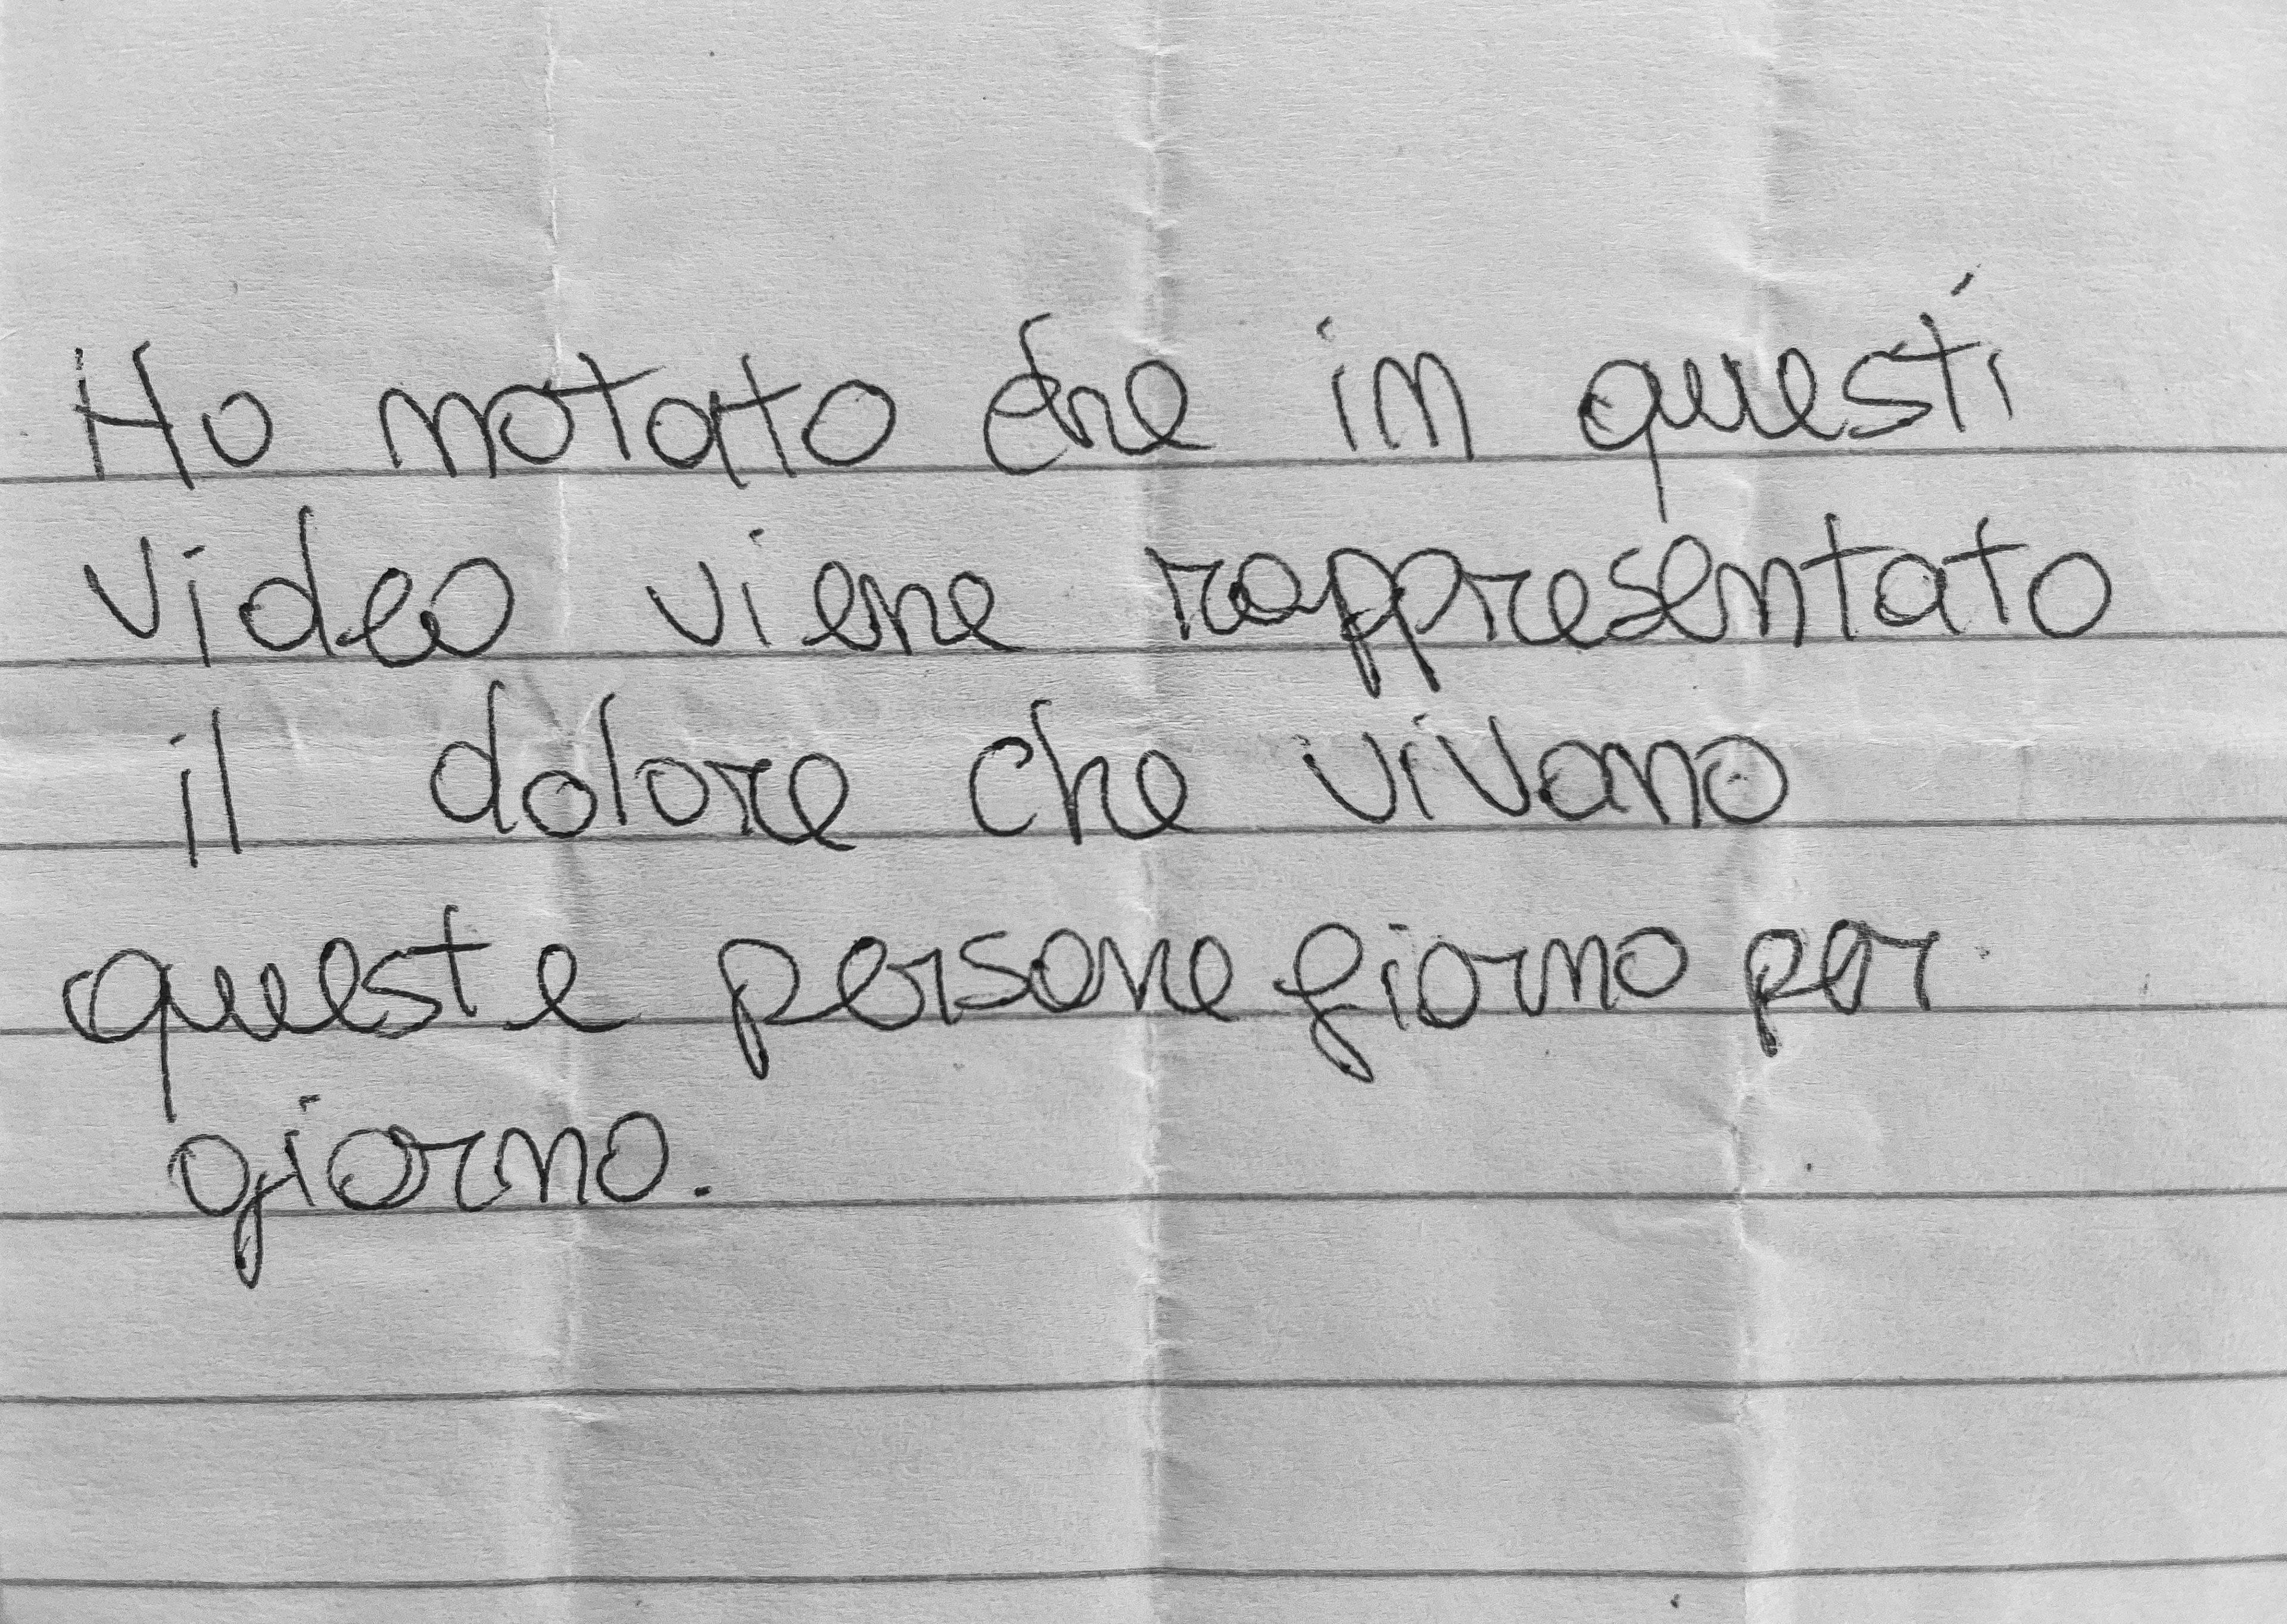 Ho notato che in questi
video viene rappresentato
il dolore che vivano
queste persone giorno per
giorno.